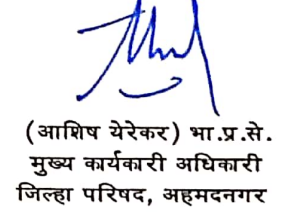 (आशिष येरेकर) भा.प्र.से.
मुख्य कार्यकारी अधिकारी
जिल्हा परिषद, अहमदनगर